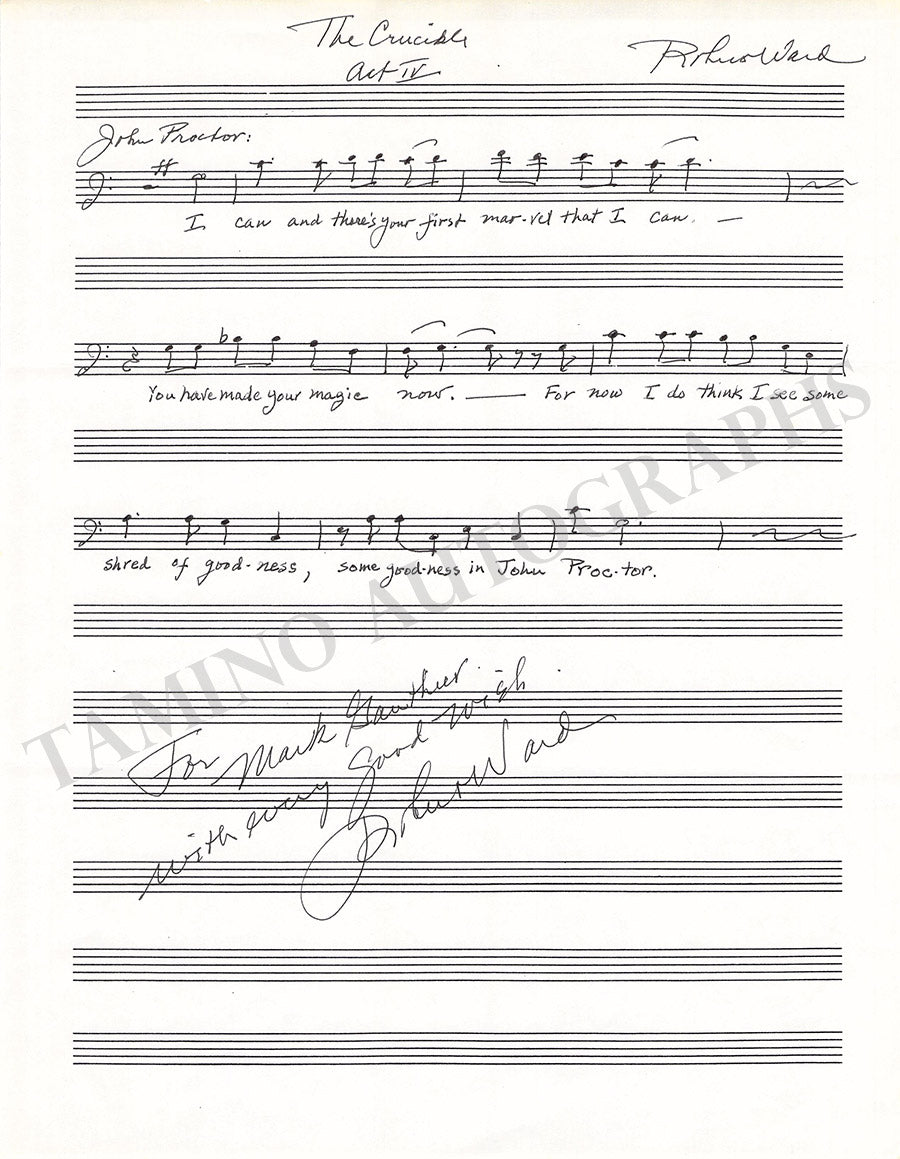 The Crucible
Act IV
Robert Ward
John Proctor:
I can and there's your first mar-vel that I can. —
You have made your magic now. — For now I do think I see some
shred of good-ness, some good-ness in John Proc-tor.
TAMINO AUTOGRAPHS
For Mark Gauthier
with every good wish
Robert Ward